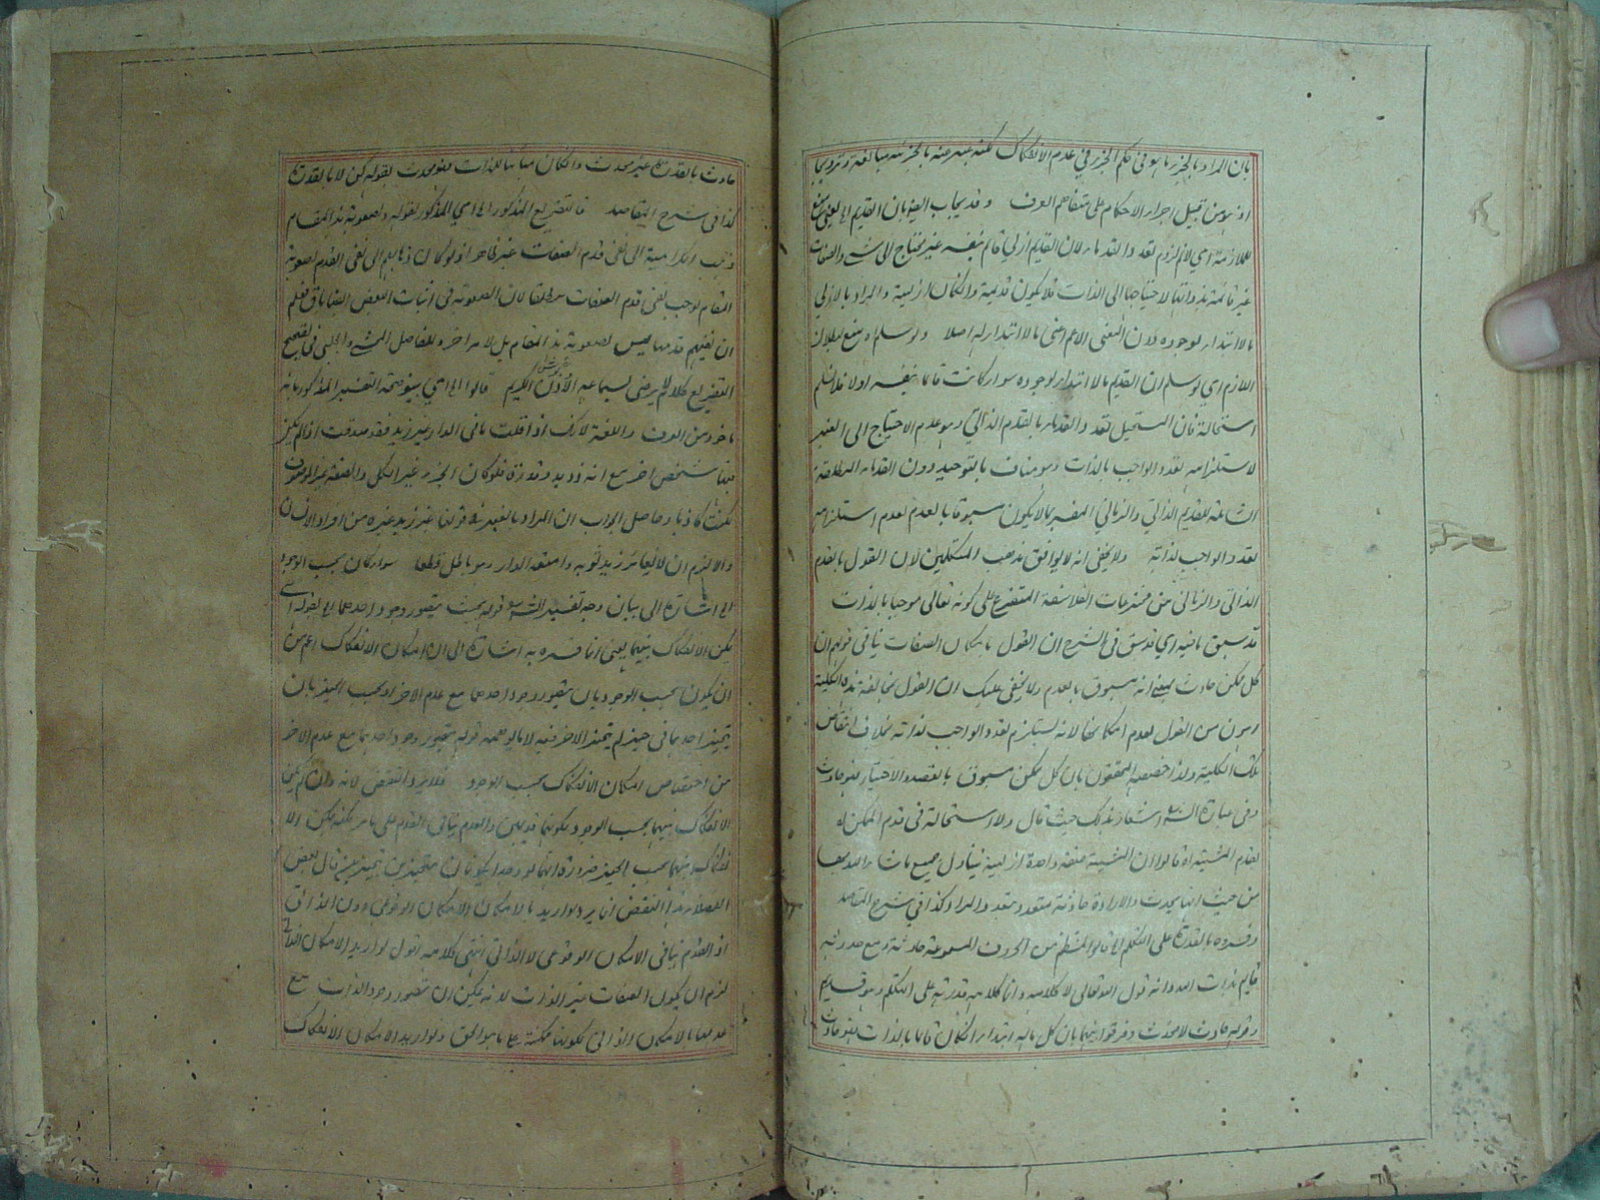 بان المراد بالجزء ما هو في حكم الجزء في عدم الانفكاك لكنه عبر عنه بالجزء مبالغة وترويجا
اذ هو من قبيل اجراء الاحكام على متفاهم العرف وقد يجاب الغير بان القديم
الملازمة اي لا نم لزوم تعدد القدماء لان القديم ازلي قائم بنفسه غير محتاج الى شيء والصفات
غير قائمة بذواتها لاحتياجها الى الذات فلا يكون قديمة وان كان ازلية والمراد بالازلي
ما لا ابتداء لوجوده دون المعنى الاعم اعني ما لا ابتداء له اصلا ولو سلم يمنع بطلان
اللازم اي لو سلم ان القديم ما لا ابتداء لوجوده سواء كانت قائما بنفسه او لا فلا نسلم
استحالة فان المستحيل تعدد القدماء بالقدم الذاتي وهو عدم الاحتياج الى الغير
لاستلزامه تعدد الواجب بالذات وهو مناف بالتوحيد دون القدماء المطلقة
الشاملة للقديم الذاتي والزماني المفسر بما لا يكون مسبوقا بالعدم لعدم استلزامه
تعدد الواجب لذاته ولا يخفى انه لا يوافق مذهب المتكلمين لان القول بالقدم
الذاتي والزماني من مخترعات الفلاسفة المتفرع على كونه تعالى موجبا بالذات
قد سبق ما فيه اي قد سبق في الشرح ان القول بامكان الصفات ينافي قولهم ان
كل ممكن حادث بمعنى انه مسبوق بالعدم ولا يخفى عليك ان القول بمخالفة هذه الكلية
اهون من القول بعدم امكانها لانه يستلزم تعدد الواجب لذاته بخلاف انتقاض
تلك الكلية ولذا خصصه المحققون بان كل ممكن مسبوق بالقصد والاختيار فهو حادث
وفي عبارة الش اشعار بذلك حيث قال ولا استحالة في قدم الممكن اه
بقدم المشيئة اه قالوا ان المشيئة صفة واحدة ازلية يتناول جميع ما شاء الله بها
من حيث انها يحدث والارادة حادثة متعددة بتعدد المراد كذا في شرح المقاصد
وفسروه بالقدرة على التكلم الخ قالوا المنتظم من الحروف المسموعة حادثة ومع حدوثه
قايم بذات الله وانه قول الله تعالى لا كلامه وانما كلامه قدرته على التكلم وهو قديم
وقوله حادث لا محدث وفرقوا بينهما بان كل ماله ابتداء ان كان قائما بالذات فهو حادث
حادث بالقدرة غير محدث وان كان مباينا للذات فهو محدث بقوله كن لا بالقدرة
كذا في شرح المقاصد فالتفريع المذكور الخ اي المذكور بقوله ولصعوبة هذا المقام
ذهب الكرامية الى نفي قدم الصفات غير ظاهر اذ لو كان ذهابهم الى نفي القدم لصعوبة
المقام لوجب نفي قدم الصفات مطلقا لان الصعوبة في اثبات البعض ايضا باق فعلم
ان نفيهم قدمها ليس لصعوبة هذا المقام بل لامر اخر وللفاضل المحشي والجلبي في تصحيح
التفريع كلام لا يرضى لسماعه الاذن الكريم قالوا الخ اي بينوا صحة التفسير المذكور بانه
ماخوذ من العرف واللغة لانك اذا قلت ما في الدار غير زيد فقد صدقت اذا لم يكن
فيها شخص اخر مع انه ذو يد وقدرة فلو كان الجزء غير الكل والصفة غير الموصوف
لكنت كاذبا وحاصل الجواب ان المراد بالغير في قولنا غير زيد غيره من افراد الانسان
والا لزم ان لا يغاير زيد ثوبه وامتعة الدار وهو باطل قطعا سواء كان بحسب الوجود
الخ اشارة الى بيان وجه تفسير الش قوله بحيث يتصور وجود احدهما الخ بقوله اي
يمكن الانفكاك بينهما يعني انما فسره به اشارة الى ان امكان الانفكاك اعم من
ان يكون بحسب الوجود بان يتصور وجود احدهما مع عدم الاخر او بحسب الحيز بان
يتحيز احدهما في حيز لم يتحيز الاخر فيه لا ما يوهمه قوله يتصور وجود احدهما مع عدم الاخر
من اختصاص امكان الانفكاك بحسب الوجود فلا يرد النقض لانه وان لم يمكن
الانفكاك بينهما بحسب الوجود لكونهما قديمين والعدم ينافي القدم على ما مر لكنه يمكن الا
نفكاك بينهما بحسب الحيز ضرورة انهما لو وجدا يكونان متحيزين بحيزين قال بعض
الفضلاء هذا النقض انما يرد لو اريد بالامكان الامكان الوقوعي دون الذاتي
اذ القدم ينافي الامكان الوقوعي لا الذاتي انتهى كلامه اقول لو اريد الامكان الذاتي
لزم ان يكون الصفات غير الذات لانه يمكن ان يتصور وجود الذات مع
عدمها بالامكان الذاتي لكونها ممكنة على ما هو الحق ولو اريد الامكان الانفكاك